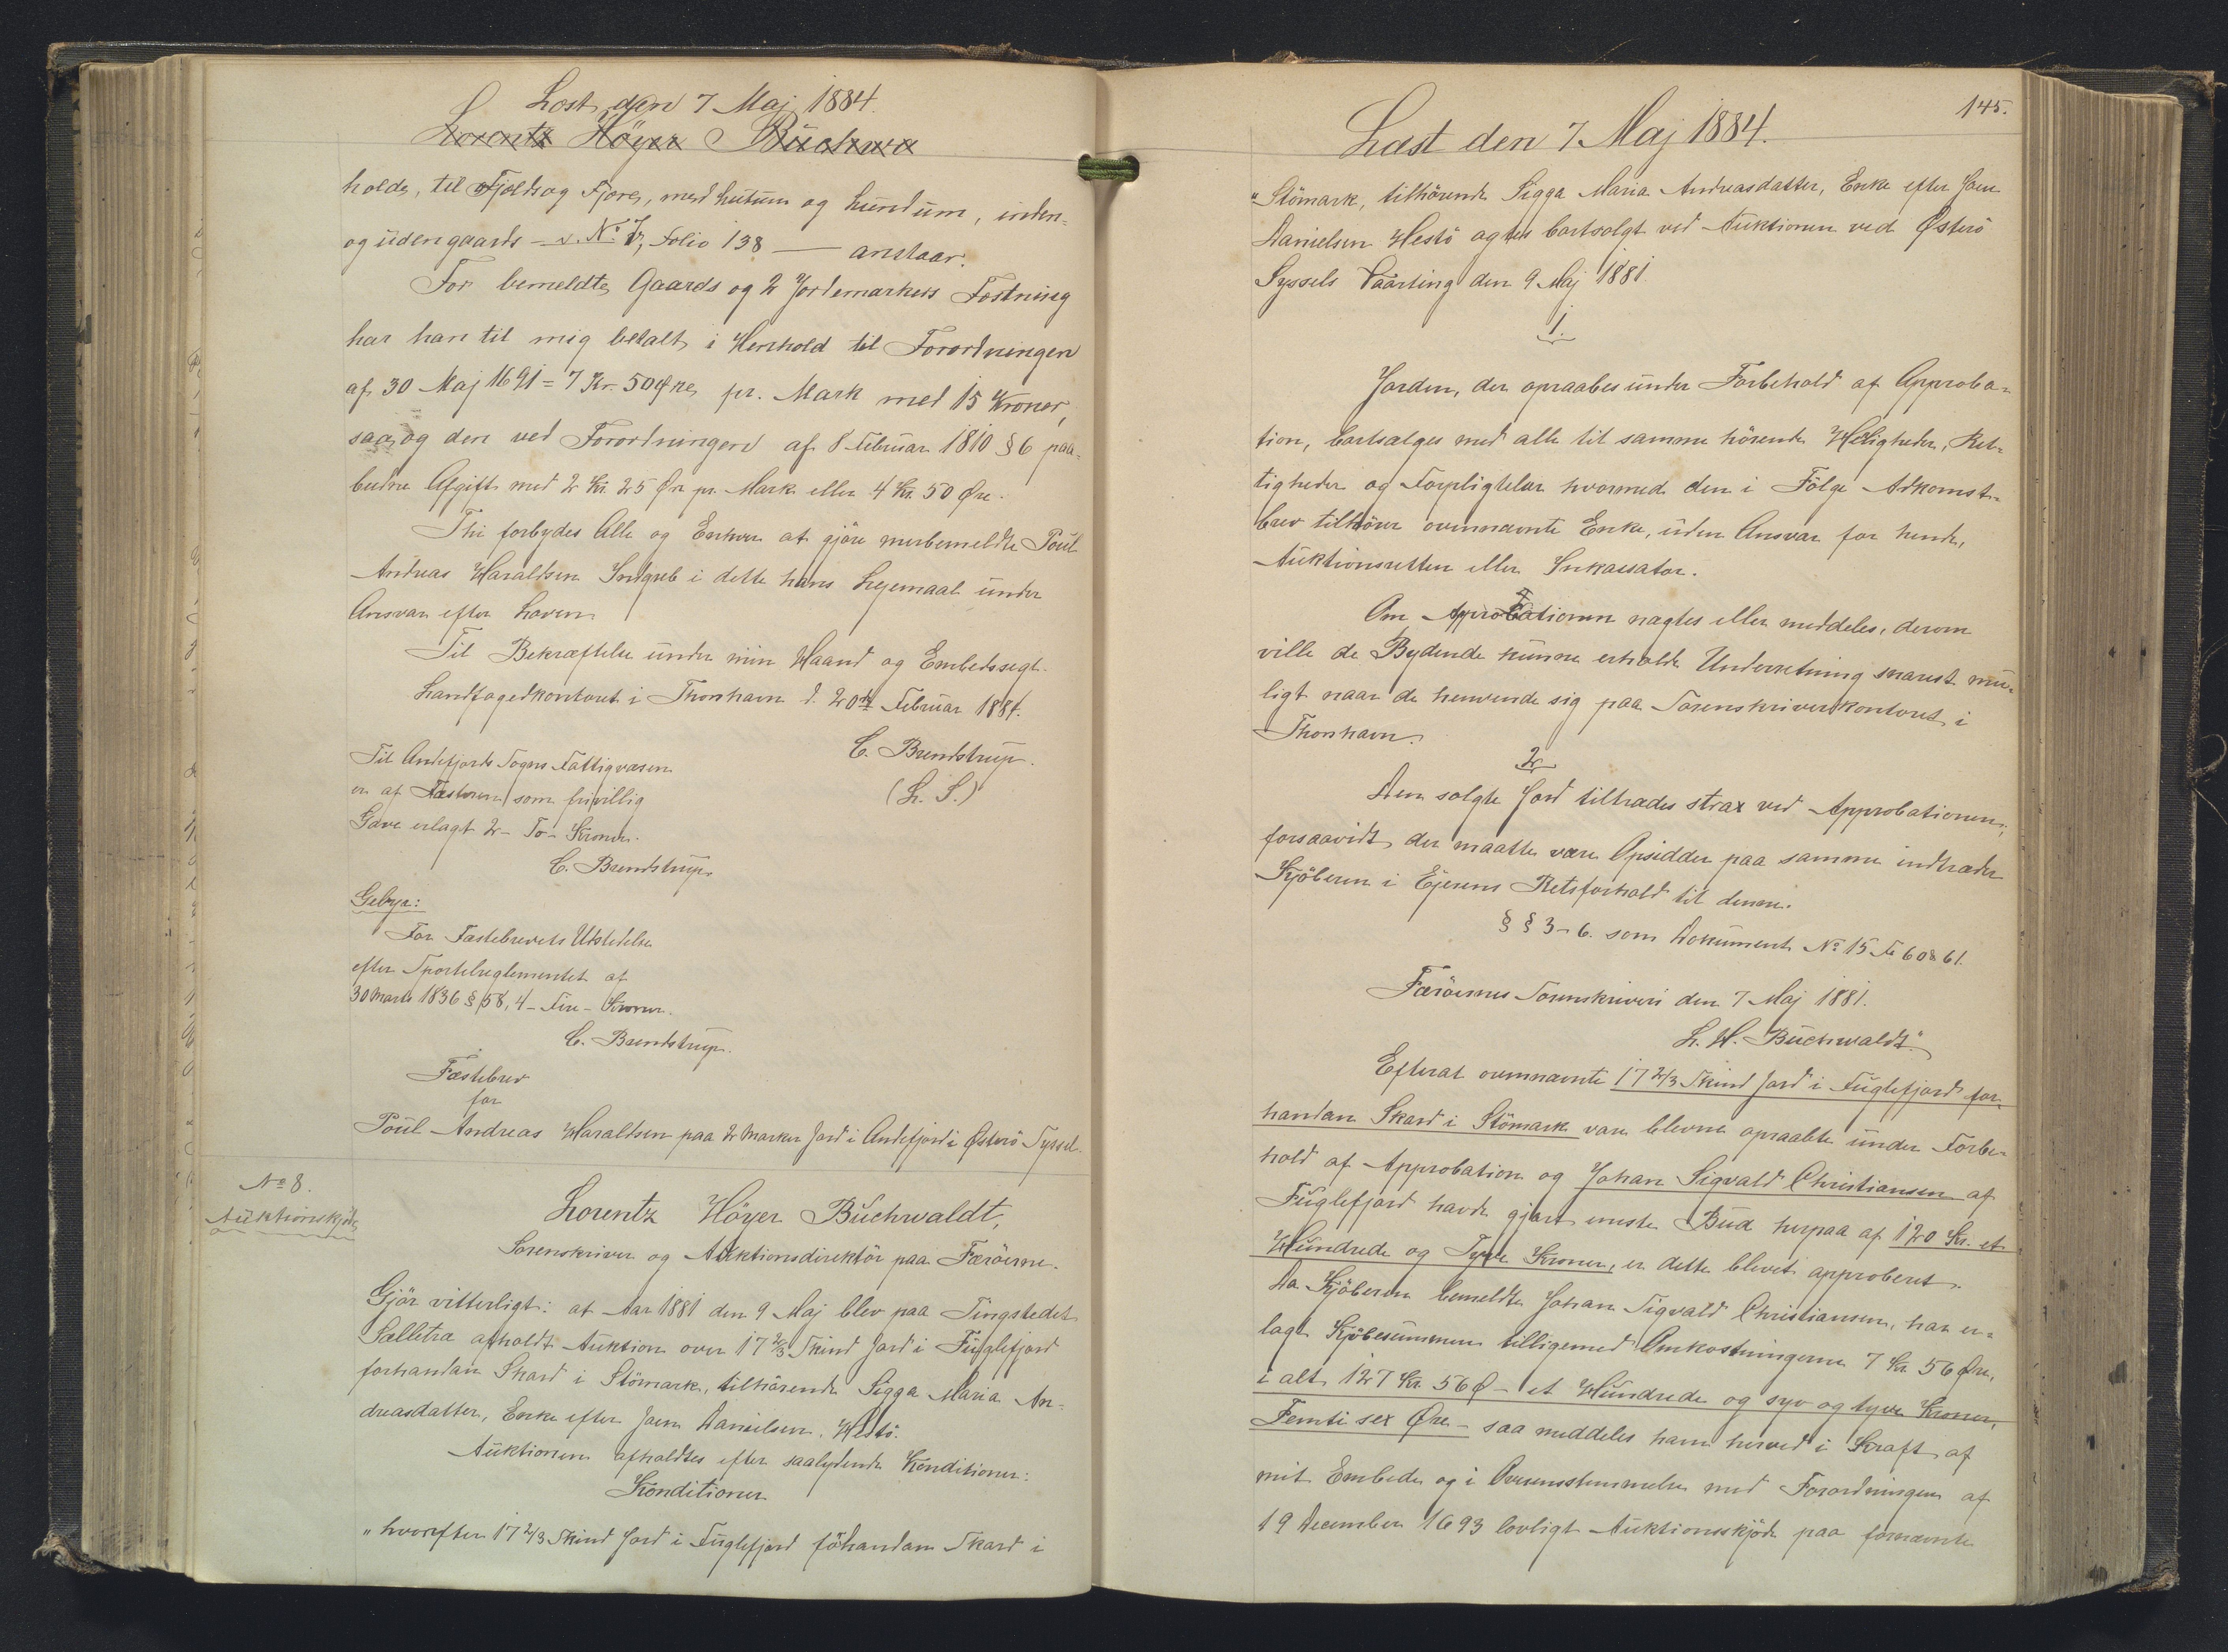 Læst den 7 Maj 1884.
Lorentz Höyer Buchwa
holds, til Fjelds og Fjore, med hutum og hundum, inden-
og udengaards - v. No 7, Folio 138 — anstaar.
For bemeldte Gaards og 2 Jordemarkers Fæstning
har han til mig betalt i Henhold til Forordningen
af 30 Maj 1691 = 7 Kr. 50 Øre pr. Mark med 15 Kroner,
saa og den ved Forordningen af 8 Februar 1810 § 6 paa-
budne Afgift med 2 Kr. 25 Øre pr. Mark eller 4 Kr. 50 Øre.
Thi forbydes Alle og Enhver at gjöre merbemeldte Poul
Andreas Haraldsen Indgreb i dette hans Lejemaal under
Ansvar efter Loven.
Til Bekræftelse under min Haand og Embedssegl.
Landfogedkontoret i Thorshavn d. 20de Februar 1884.
C. Brendstrup.
(L. S.)
Til Andefjords Sogns Fattigvæsen
er af Fæsteren som frivillig
Gave erlagt 2 - To - Kroner.
C. Brendstrup.
Gebyr:
For Fæstebrevets Udstedelse
efter Sportelreglementet af
30 Marts 1836 § 58, 4 - Fire - Kroner.
C. Brendstrup.
Fæstebrev
for
Poul Andreas Haraldsen paa 2 Marker Jord i Andefjord i Østerö Syssel.
No 8.
Auktionskjöde
Lorentz Höyer Buchwaldt,
Sorenskriver og Auktionsdirektör paa Færöerne.
Gjör vitterligt: at Aar 1881 den 9 Maj blev paa Tingstedet
Sælletræ afholdt Auktion over 17 2/3 Skind Jord i Fuglefjord
forhandan Skard i Stömark, tilhörende Sigga Maria An-
dreasdatter, Enke efter Joen Danielsen, Hestö.
Auktionen afholdtes efter saalydende Konditioner:
Konditioner
"hvorefter 17 2/3 Skind Jord i Fuglefjord forhandan Skard i
145.
Læst den 7 Maj 1884.
"Stömark, tilhörende Sigga Maria Andreasdatter, Enke efter Joen
Danielsen Hestö agtes bortsolgt ved Auktionen ved Østerö
Syssels Vaarting den 9 Maj 1881.
1.
Jorden, der opraabes under Forbehold af Approba-
tion, bortsælges med alle til samme hörende Herligheder, Ret-
tigheder og Forpligtelser hvormed den i Fölge Adkomst-
brev tilhörer ovennævnte Enke, uden Ansvar for hende,
Auktionsretten eller Inkassator.
Om Approbationen nægtes eller meddeles, derom
ville de Bydende kunne erholde Underretning snarest mu-
ligt naar de henvende sig paa Sorenskriverkontoret i
Thorshavn.
2
Den solgte Jord tiltrædes strax ved Approbationen,
forsaavidt der maatte være Opsidder paa samme indtræder
Kjöberen i Ejerens Retsforhold til denne.
§ § 3-6. som Dokument No 15 Fo 60 & 61.
Færöernes Sorenskriveri den 7 Maj 1881.
L. H. Buchwaldt."
Efterat ovennævnte 17 2/3 Skind Jord i Fuglefjord for-
handan Skard i Stömark vare blevne opraabte under Forbe-
hold af Approbation og Johan Sigvald Christiansen af
Fuglefjord havde gjort eneste Bud herpaa af 120 Kr. et
Hundrede og Tyve Kroner, er dette blevet approberet.
Da Kjöberen bemeldte Johan Sigvald Christiansen, har er-
lagt Kjöbesummen tilligemed Omkostningerne 7 Kr. 56 Øre,
i alt 127 Kr. 56 Ø - et Hundrede og syv og tyve Kroner,
Femti sex Øre - saa meddeles ham herved i Kraft af
mit Embede og i Overensstemmelse med Forordningen af
19 December 1693 lovligt Auktionsskjöde paa fornævnte